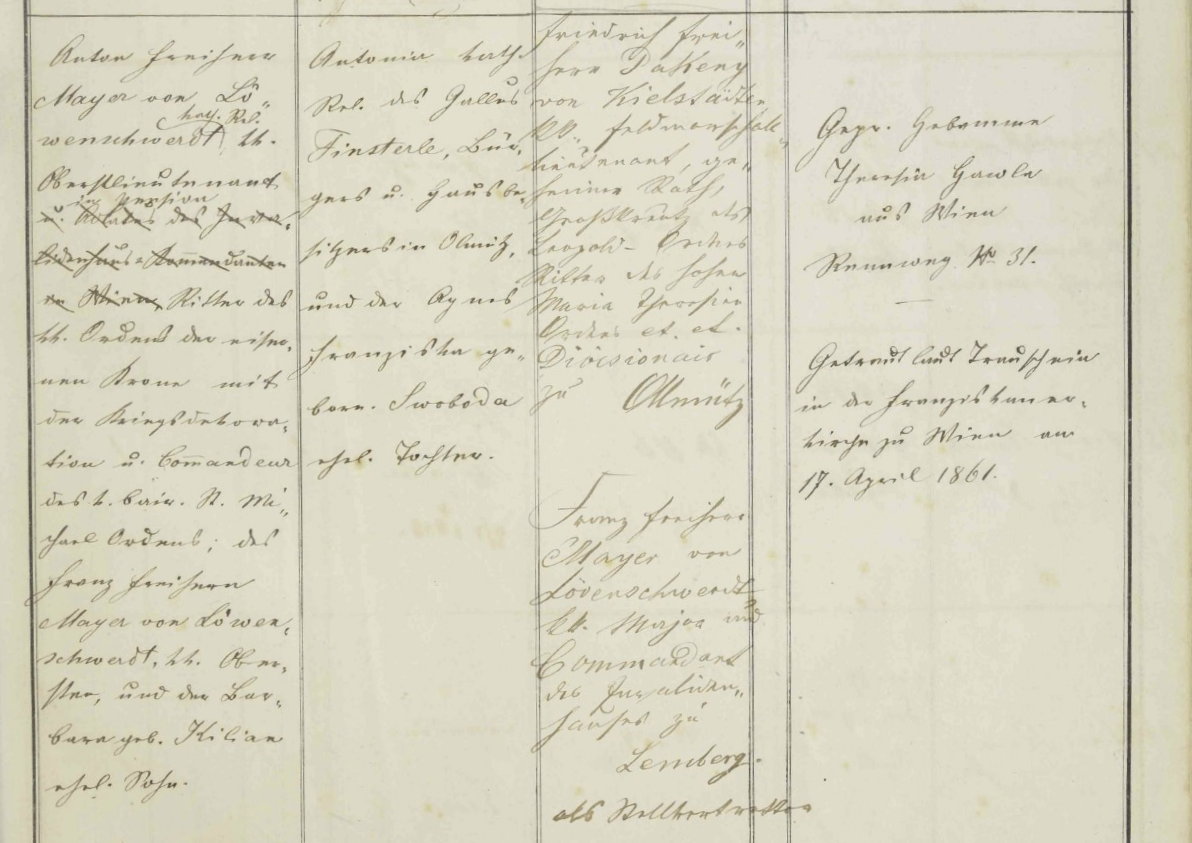 Anton Freiherr
Mayer von Lö„
kath. Rel.
wenschwerdt, k.k.
Oberstlieutenant
in Pension
u. Adlatus des Inva-
lidenhaus-Kommandanten
in Wien, Ritter des
k.k. Ordens der eiser-
nen Krone mit
der Kriegsdekora-
tion u. Commandeur
des k. bair. St. Mi„
chael Ordens; des
Franz Freiherrn
Mayer von Löwen-
schwerdt, k.k. Ober-
sten, und der Bar-
bara geb. Kilian
ehel. Sohn.
Antonia kath.
Rel. des Gallus
Finsterle, Bür-
gers u. Hausbe-
sitzers in Olmütz,
und der Agnes
Franziska ge-
born. Swoboda
ehel. Tochter.
Friedrich Frei„
herr Dakeny
von Kielstädten
kk. Feldmarschall„
lieutenant, ge-
heimer Rath,
Großkreutz des
Leopold-Ordens
Ritter des hohen
Maria Theresien
Ordens et. et.
Divisionair
zu Ollmütz
Franz Freiherr
Mayer von
Lövenschwerdt
kk. Major und
Commandant
des Invaliden„
hauses zu
Lemberg.
als Stellvertretter
Gepr. Hebamme
Theresia Hawle
aus Wien
Rennweg No 31.
Getraut laut Trauschein
in der Franziskaner-
kirche zu Wien am
17. April 1861.